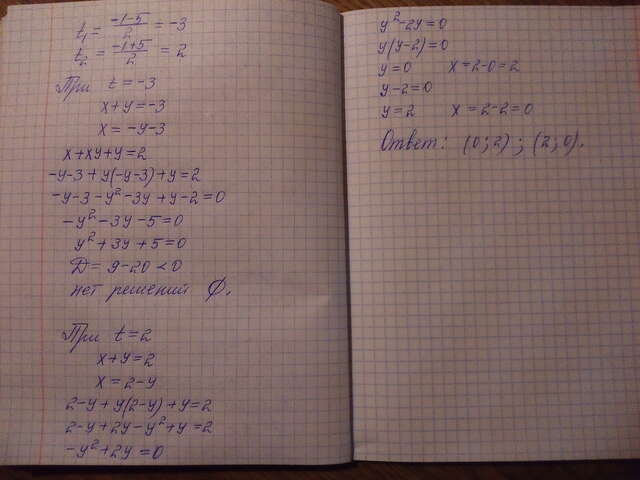 t₁ = (-1-5)/2 = -3
t₂ = (-1+5)/2 = 2
При t = -3
x+y = -3
x = -y-3
x+xy+y=2
-y-3+y(-y-3)+y=2
-y-3-y²-3y+y-2=0
-y²-3y-5=0
y²+3y+5=0
D = 9-20 < 0
нет решений ∅.
При t=2
x+y=2
x=2-y
2-y+y(2-y)+y=2
2-y+2y-y²+y=2
-y²+2y=0
y²-2y=0
y(y-2)=0
y=0 x=2-0=2
y-2=0
y=2 x=2-2=0
Ответ: (0;2);(2;0).